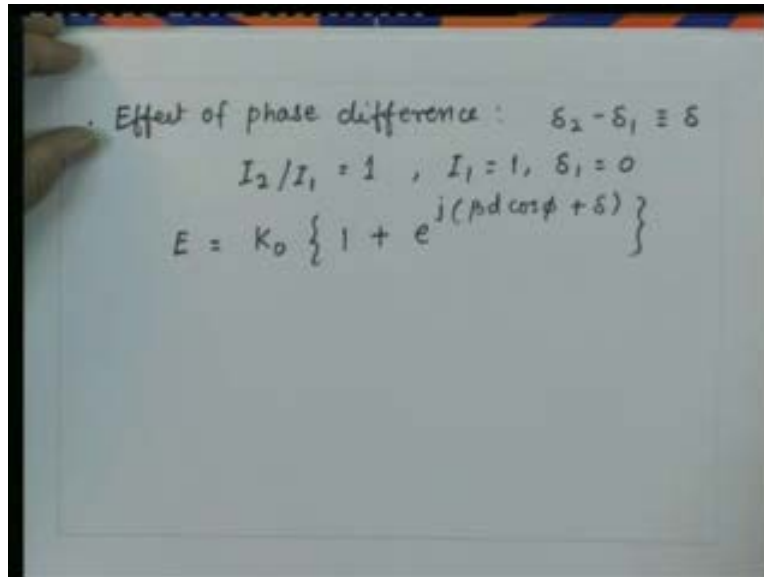 . Effect of phase difference : δ₂ - δ₁ ≡ δ
I₂/I₁ = 1 , I₁ = 1, δ₁ = 0
E = K₀ { 1 + e^{j(βd cosφ + δ)} }